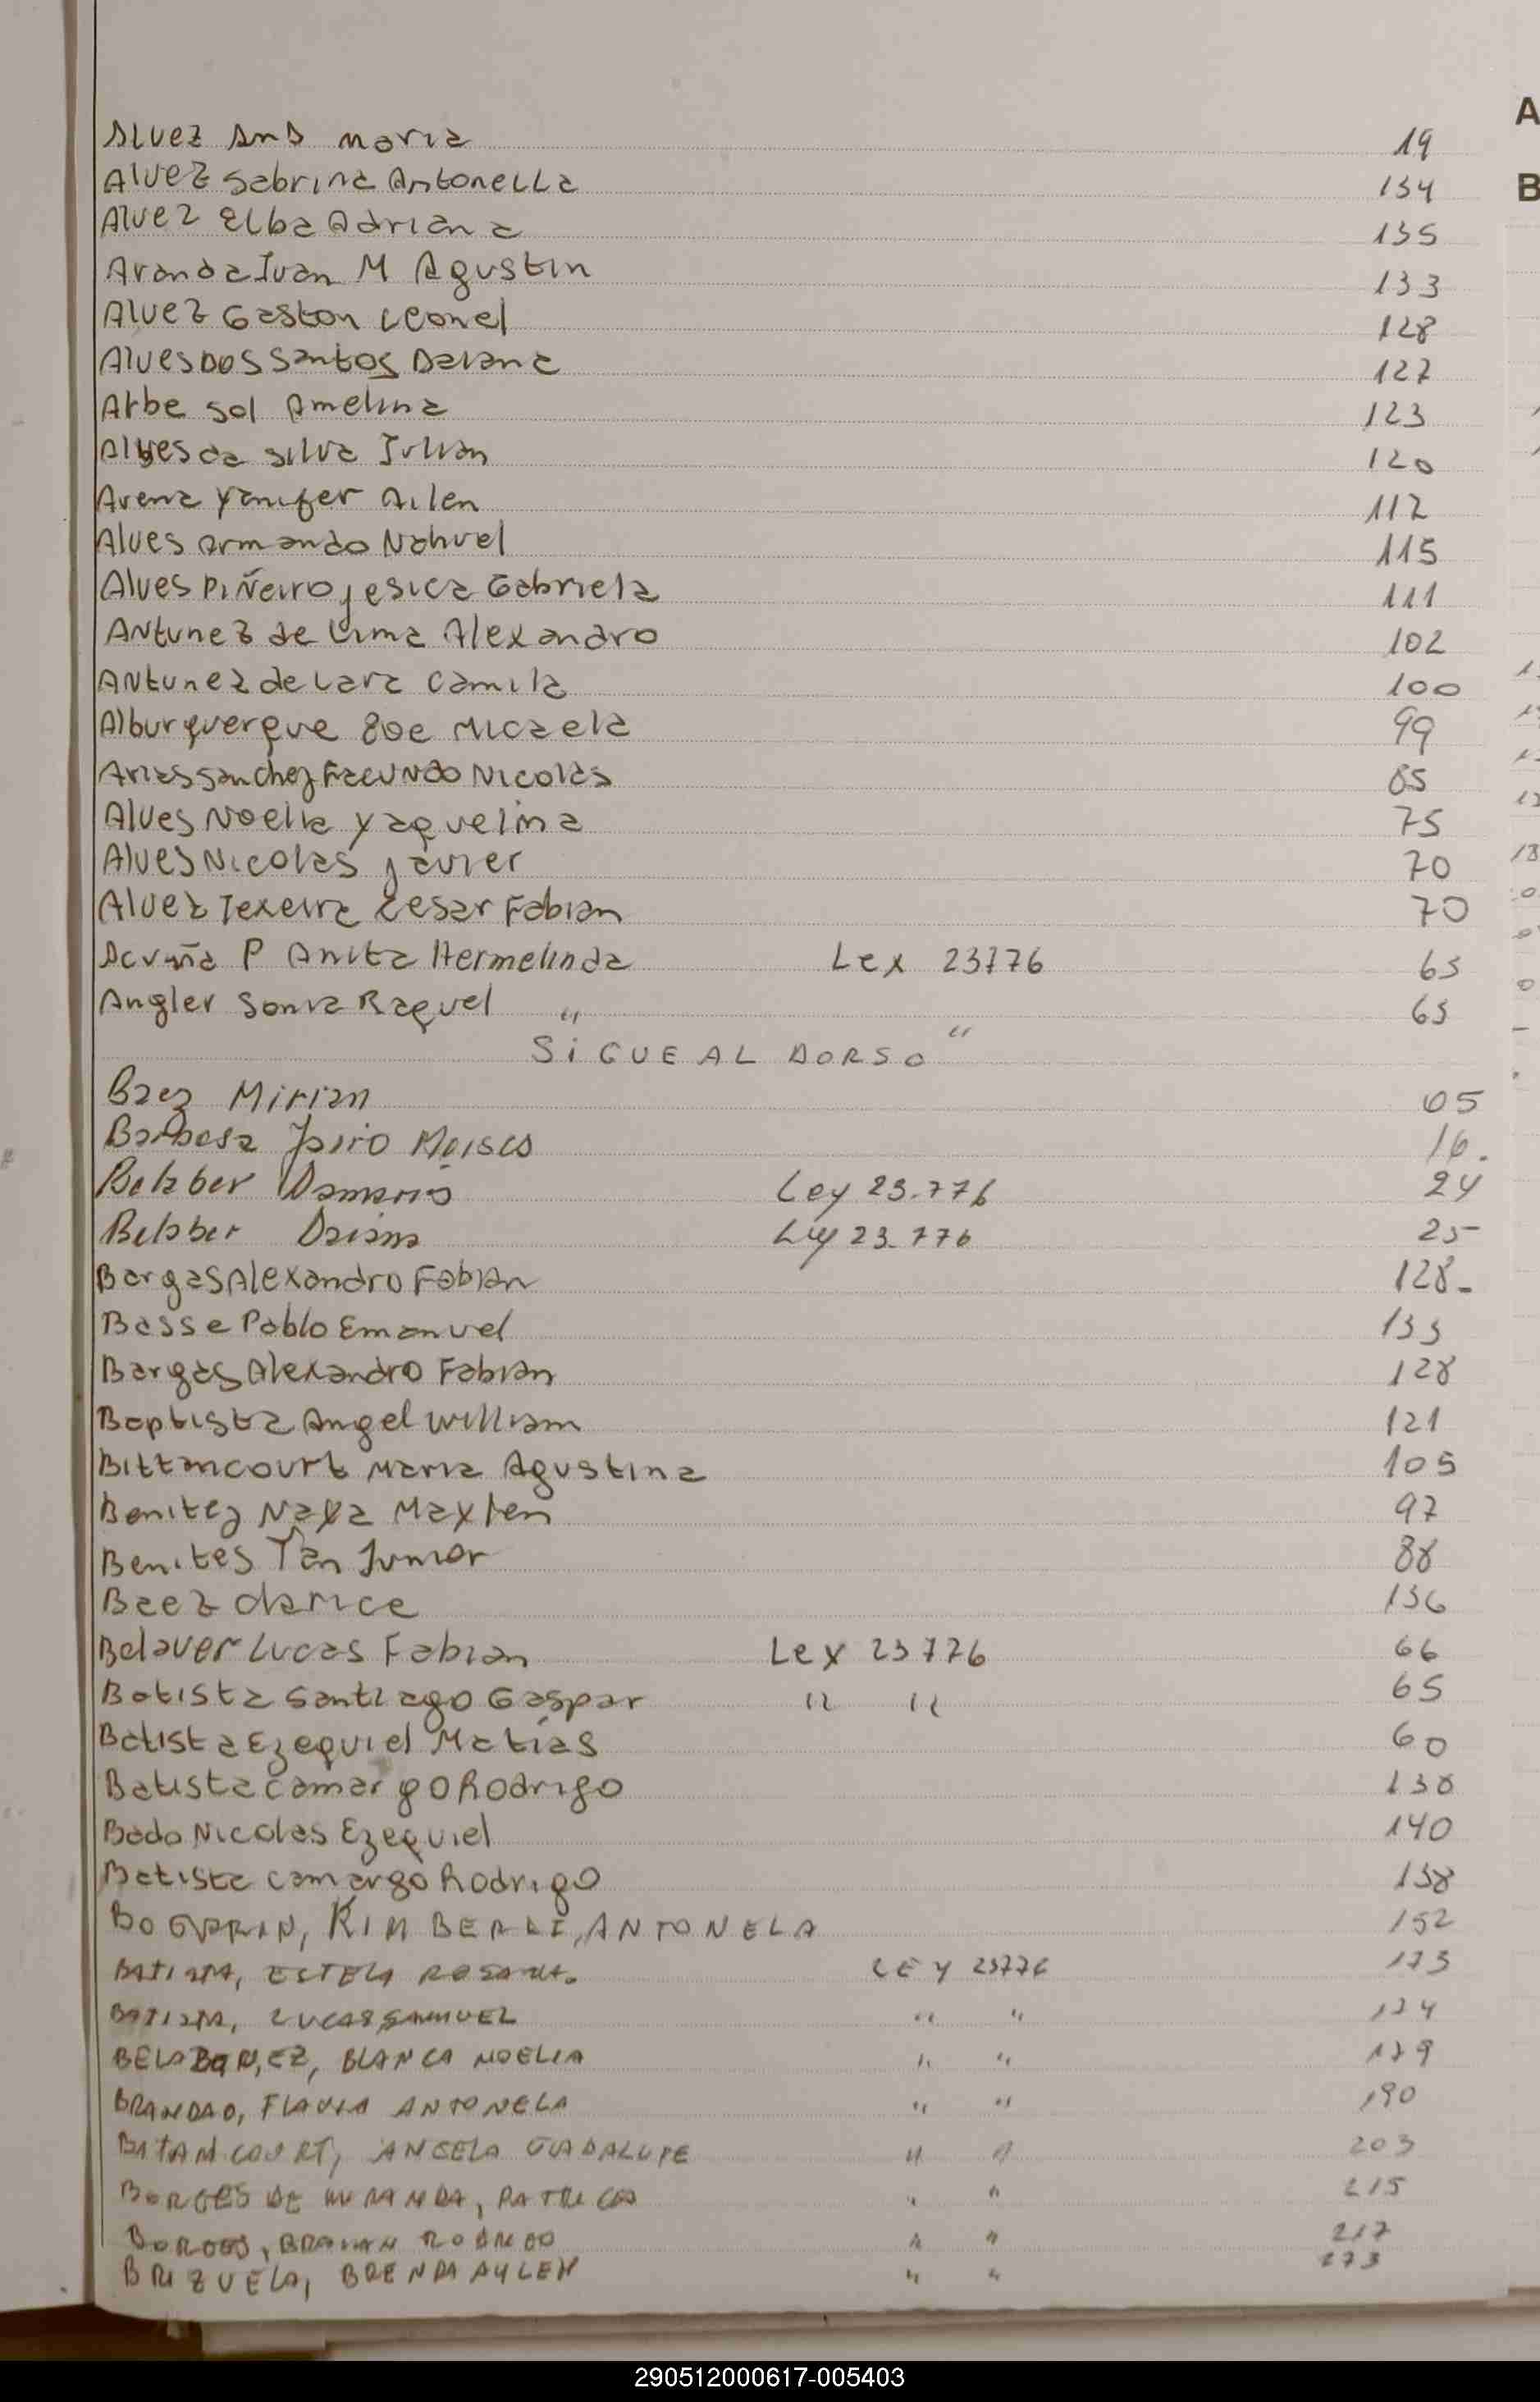 Alvez Ana Maria 19
Alvez Sabrina Antonella 134
Alvez Elba Adriana 135
Aranda Ivan M Agustin 133
Alvez Gaston Leonel 128
Alves Dos Santos Daiana 127
Arbe Sol Amelina 123
Alves da Silva Julian 120
Arena Yanifer Ailen 112
Alves Armando Nahuel 115
Alves Piñeiro Jesica Gabriela 111
Antunez de Lima Alexandro 102
Antunez de Lara Camila 100
Alburquerque Zoe Micaela 99
Arias Sanchez Facundo Nicolas 85
Alves Noelia Yaquelina 75
Alves Nicolas Javier 70
Alvez Texeira Cesar Fabian 70
Acuña P Anita Hermelinda Lex 23776 65
Angler Sonia Raquel " 65
SiGUE AL DORSO "
Baez Mirian 05
Barbosa Jairo Moises 16.
Belaber Damaris Ley 23.776 24
Belaber Daiana Ley 23.776 25
Bargas Alexandro Fabian 128-
Basse Pablo Emanuel 133
Bargas Alexandro Fabian 128
Baptista Angel William 121
Bittancourt Maria Agustina 105
Benitez Naya Maylen 97
Benites Yan Junior 88
Baez Clarice 136
Belaver Lucas Fabian Lex 23776 66
Batista Santiago Gaspar " " 65
Batista Ezequiel Matías 60
Batista Camargo Rodrigo 138
Bado Nicolas Ezequiel 140
Batista Camargo Rodrigo 138
BOGARIN, KIMBERLI, ANTONELA 152
BATISTA, ESTELA ROSANA. LEY 23776 173
BATISTA, LUCAS SAMUEL " " 174
BLANCA NOELIA " " 179
BRANDAO, FLAVIA ANTONELA " " 190
BITANCOURT, ANGELA GUADALUPE " " 203
BORGES DE MIRANDA, PATRICIA " " 215
BORGES, BRAIAN RODRIGO " " 217
BRIZUELA, BRENDA AYLEN " " 273
A
B
290512000617-005403